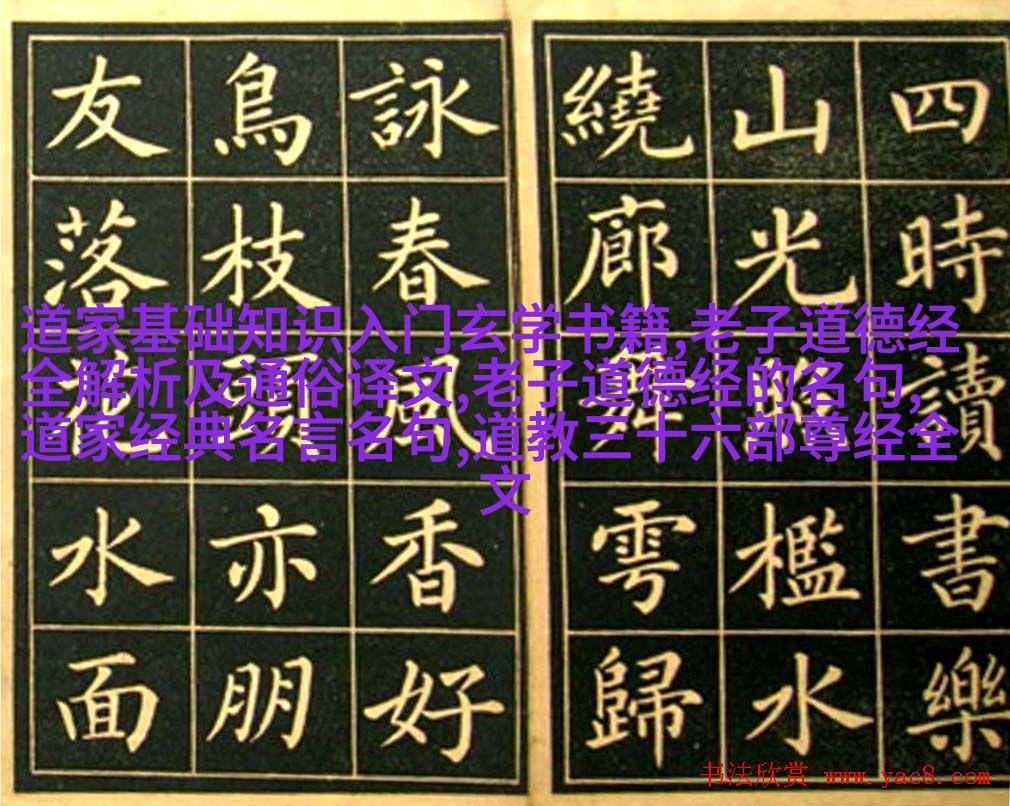 四時讀書樂
山光檻水
繞廊雩歸
詠春風香好
鳥枝亦朋
友落水面
道家基础知识入门玄学书籍,老子道德经
全解析及通俗译文,老子道德经的名句,
道家经典名言名句,道教三十六部尊经全
文
书法欣赏 www.yac8.com